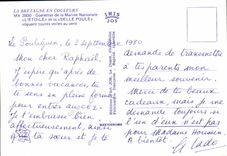 LA BRETAGNE EN COULEURS
MX 3900 - Goélettes de la Marine Nationale
« L'ETOILE » et la « BELLE POULE »
voguant toutes voiles au vent
IRIS
JOS
Le Pouliguen, le 2 septembre 1980
Mon cher Raphaël,
J'espère qu'après de
bonnes vacances, tu
te sens en pleine forme
pour entrer au
Je t'embrasse bien
affectueusement, ainsi
que ta sœur et je te
demande de transmettre
à tes parents mon
meilleur souvenir.
Merci de tes beaux
cadeaux, mais je me
demande toujours si
l'un d'eux n'est pas pour
Madame
A bientôt